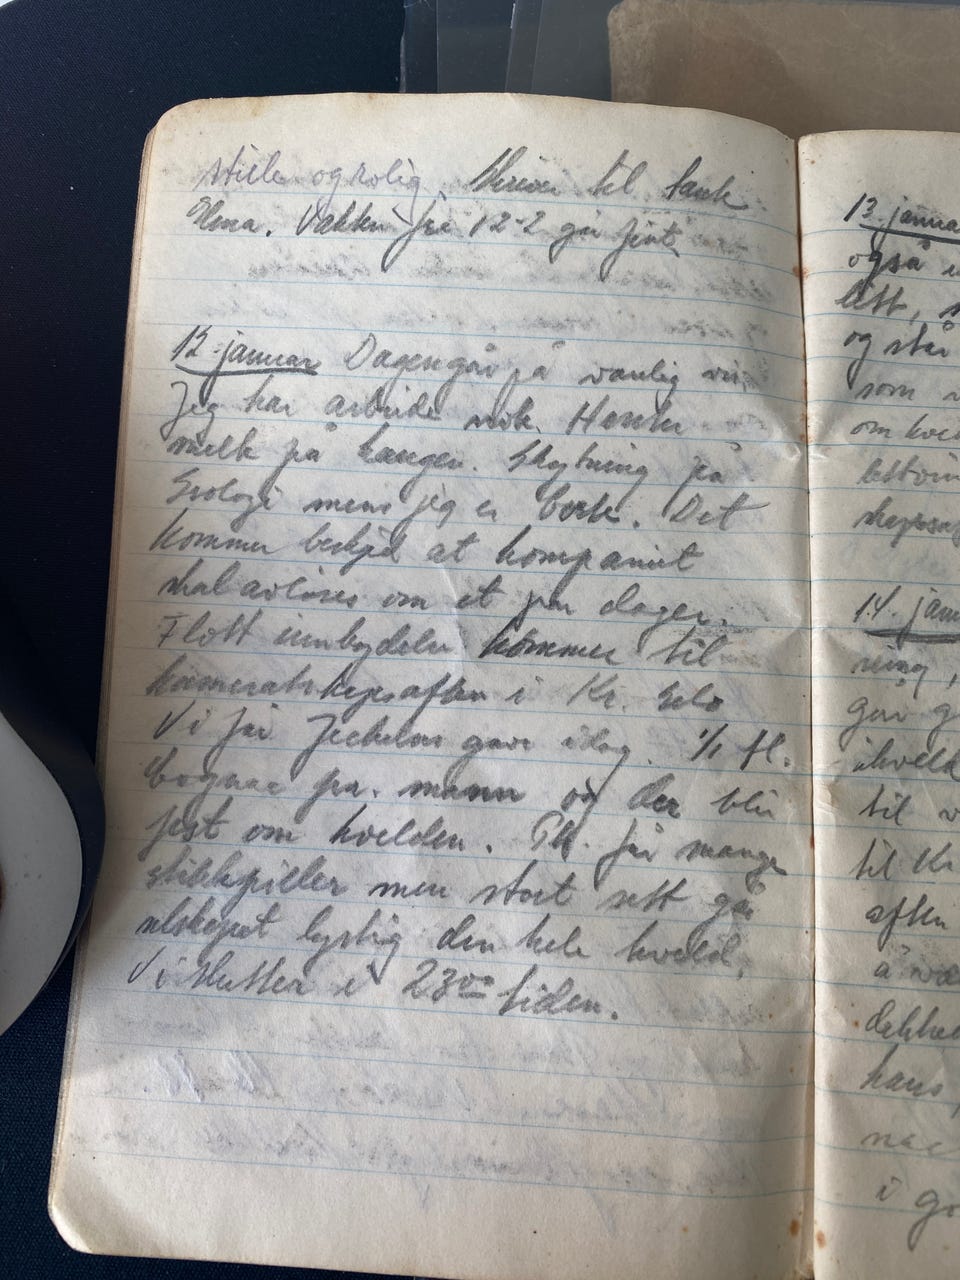 stille og rolig. Skriver til tante
Elma. Vakten fra 12-2 går fint.
12 januar Dagen går på vanlig vis.
Jeg har arbeide nok. Henter
melk på haugen. Skytning på
mens jeg er borte. Det
kommer beskjed at kompaniet
skal avløses om et par dager.
Flott innbydelse kommer til
kameratskapsaften i Kr. Selo
Vi får julegave idag. 1/1 fl.
cognac pr. mann og der blir
fest om kvelden. får mange
stikkpiller men stort sett går
selskapet lystig den hele kveld.
Vi slutter i 23⁰⁰ tiden.
13 januar
også
lett,
og står
som
om
14. jan
ring,
går
ikveld
til
til Kr
aften
å
dekke
hans
i